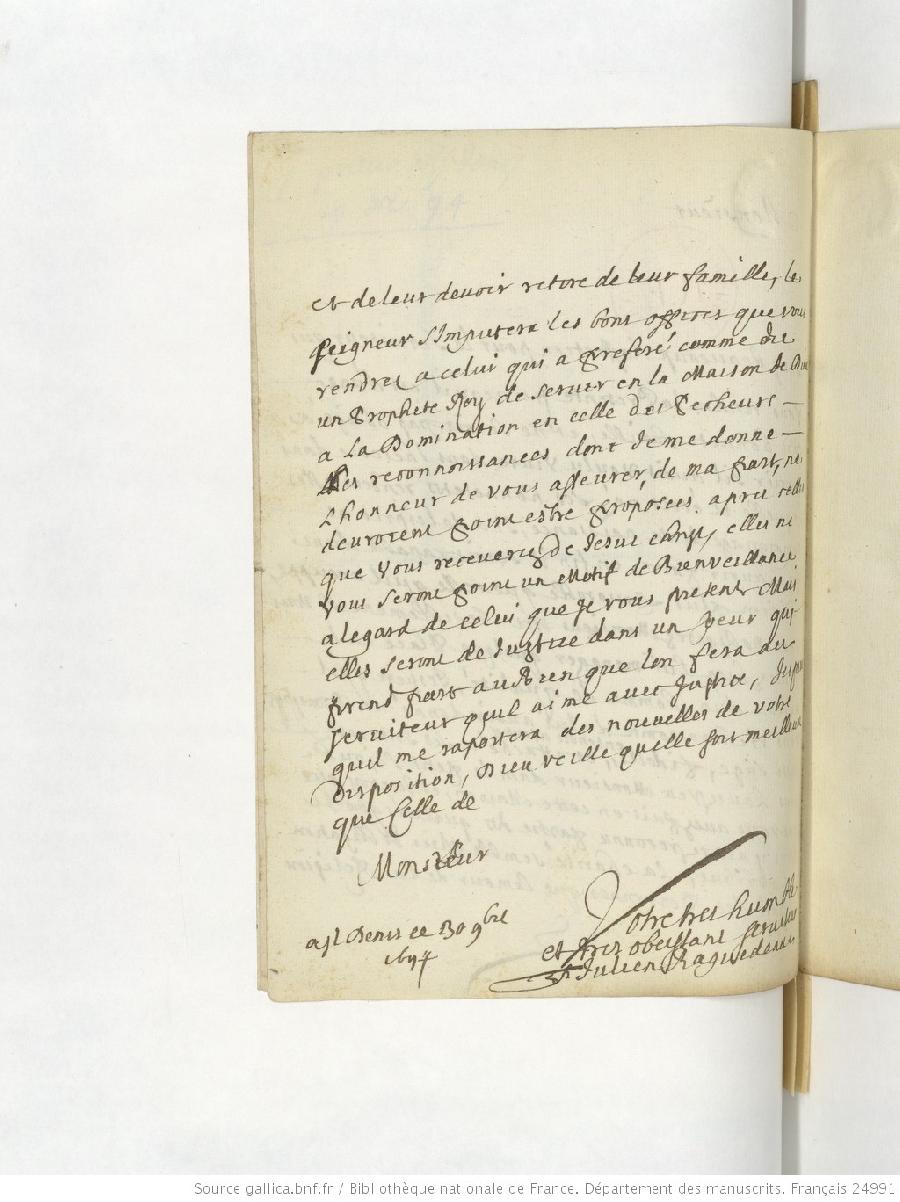 et de leur devoir retoré de leur famille, le
Seigneur s'Imputera les bons offices que vous
rendrez a celui qui a preferé comme du
un Prophete Roy de servir en la Maison de Dieu
a la Domination en celle des Pecheurs –
Les reconnoissances dont Je me donne –
L'honneur de vous asseurer, de ma part, ne
devroient point estre proposées apres celles
que Vous receverez de Jesus Christ, elles ne
vous seront point un Motif de Bienveillance
a legard de celui que Je vous presente Mais
elles seront de Justice dans un cœur qui
prend part au Bien que lon fera au
serviteur qu'il aime avec Justice, J'espere
quil me raportera des nouvelles de votre
disposition, Dieu veille quelle soit meilleure
que Celle de
Monsieur
Votre tres humble
et tres obeissant serviteur
fr Julien Raguede
a St Denis ce 30 9bre
1694
Source gallica.bnf.fr / Bibliothèque nationale de France. Département des manuscrits. Français 24991